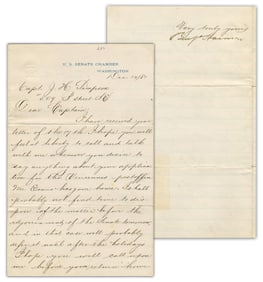 U. S. SENATE CHAMBER,
WASHINGTON
Capt. J. H. Simpson
Dear Captain:
I have received your
letter of the 17th. I hope you will
feel at liberty to call and talk
with me whenever you desire to
say anything about your applica
tion for the
Mr. has gone home. I shall
probably not find time to dis
pose of the matter before the
adjournment of the Senate
and in that case will probably
defer it until after the holidays
I hope you will call upon
me before you return home
Very truly yours
Benj Harrison